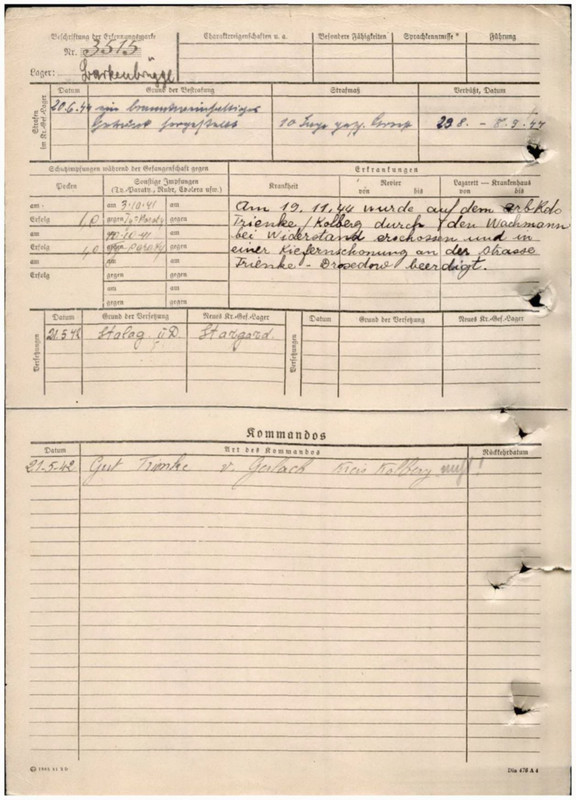 Beschriftung der Erkennungsmarke
Nr. 3515
Lager:
Charaktereigenschaften u. a.
Besondere Fähigkeiten
Sprachkenntnisse
Führung
Strafen im Kr.-Gef.-Lager
Datum
Grund der Bestrafung
Strafmaß
Verbüßt, Datum
20.6.44 ein
10 Tage
23 8. – 8. 9. 44
Schutzimpfungen während der Gefangenschaft gegen
Erkrankungen
Pocken
Sonstige Impfungen
(Ty. Paraty., Ruhr, Cholera usw.)
Krankheit
Revier
von bis
Lazarett — Krankenhaus
von bis
am am 3.10.41 am
Erfolg 1,0 gegen Ty. Paraty gegen
am am 10.10.41 am
Erfolg 1,0 gegen Paraty gegen
am am am
Erfolg gegen gegen
am am
gegen gegen
Am 19.11.44 wurde auf dem arb Kdo
Trienke / Kolberg durch den Wachmann
bei Widerstand erschossen und in
einer Kiefernschonung an der Strasse
Trienke - Drosedow beerdigt.
Versetzungen
Datum
Grund der Versetzung
Neues Kr.-Gef.-Lager
21.5.42 Stalag II D. Stargard.
Versetzungen
Datum
Grund der Versetzung
Neues Kr.-Gef.-Lager
Kommandos
Datum
Art des Kommandos
Rückkehrdatum
21-5-42 Gut Trinke v. Gerlach Kreis Kolberg
Din 476 A 4